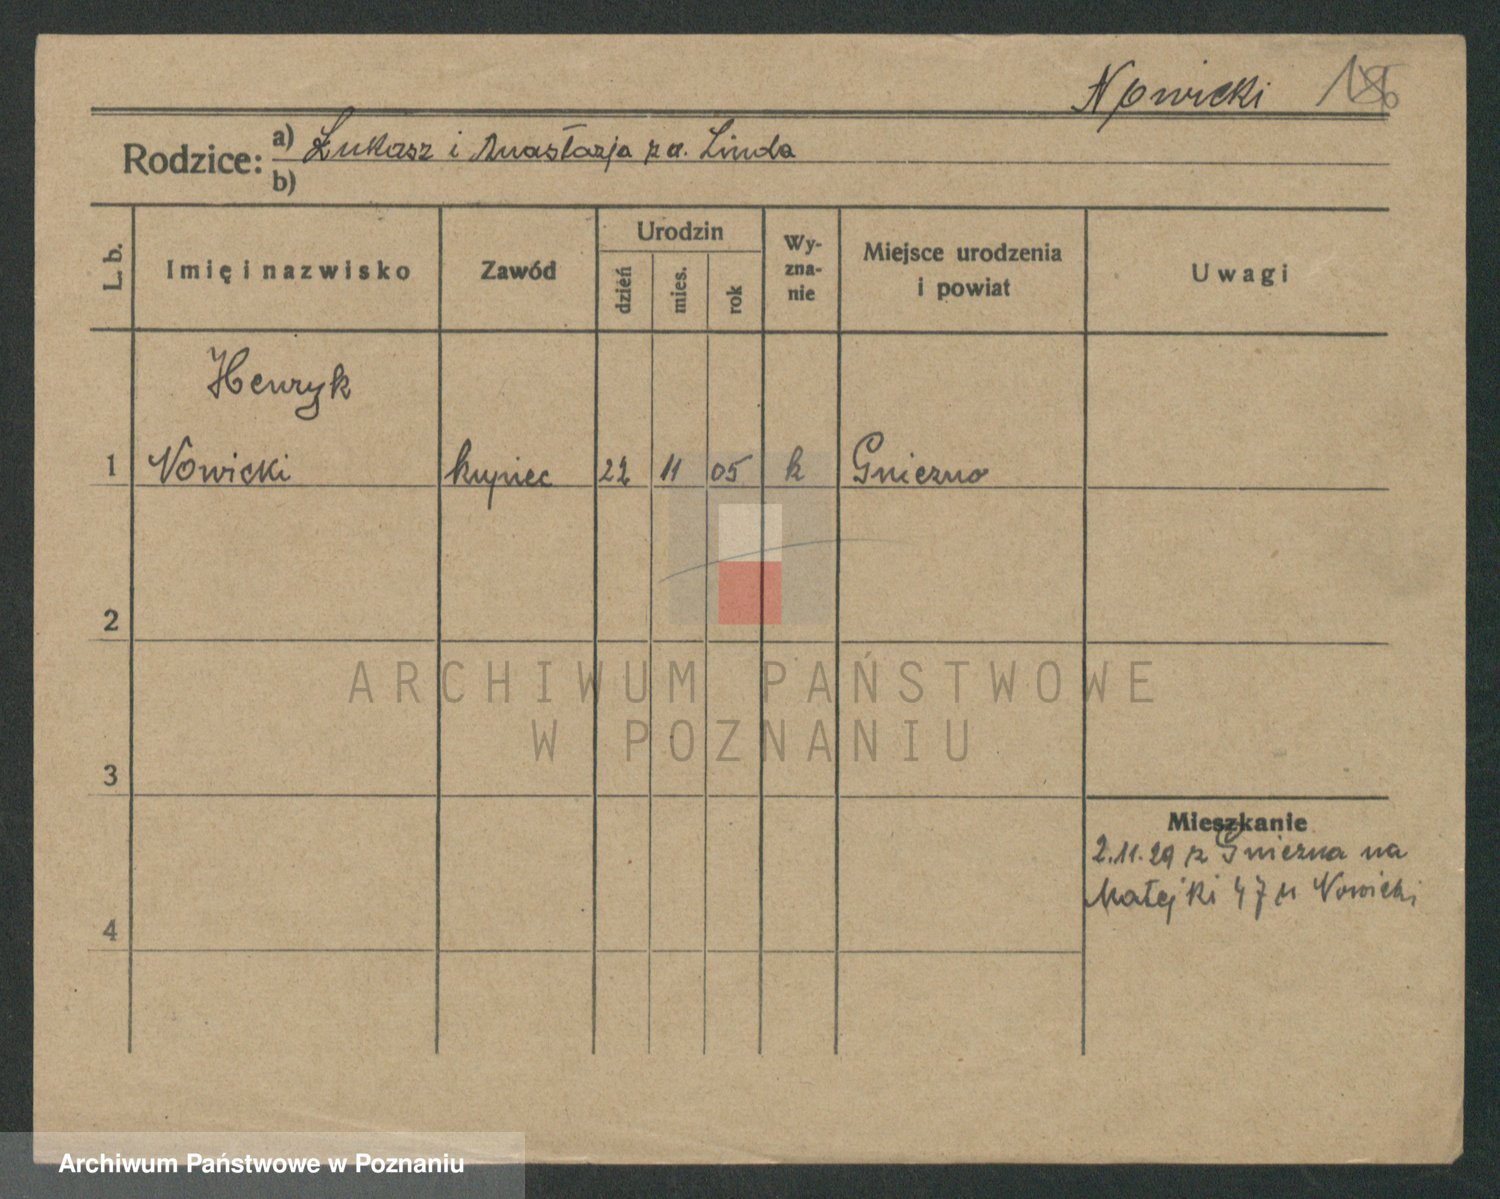 Nowicki
Rodzice: a) Łukasz i Anastazja z d. Linda
b)
L. b.
Imię i nazwisko
Zawód
Urodzin
dzień
mies.
rok
Wy-
zna-
nie
Miejsce urodzenia
i powiat
Uwagi
Henryk
1 Nowicki kupiec 22 11 05 k Gniezno
2
ARCHIWUM PAŃSTWOWE
W POZNANIU
3
Mieszkanie
2.11.29 z Gniezna na
Matejki 47 u Nowicki
4
Archiwum Państwowe w Poznaniu